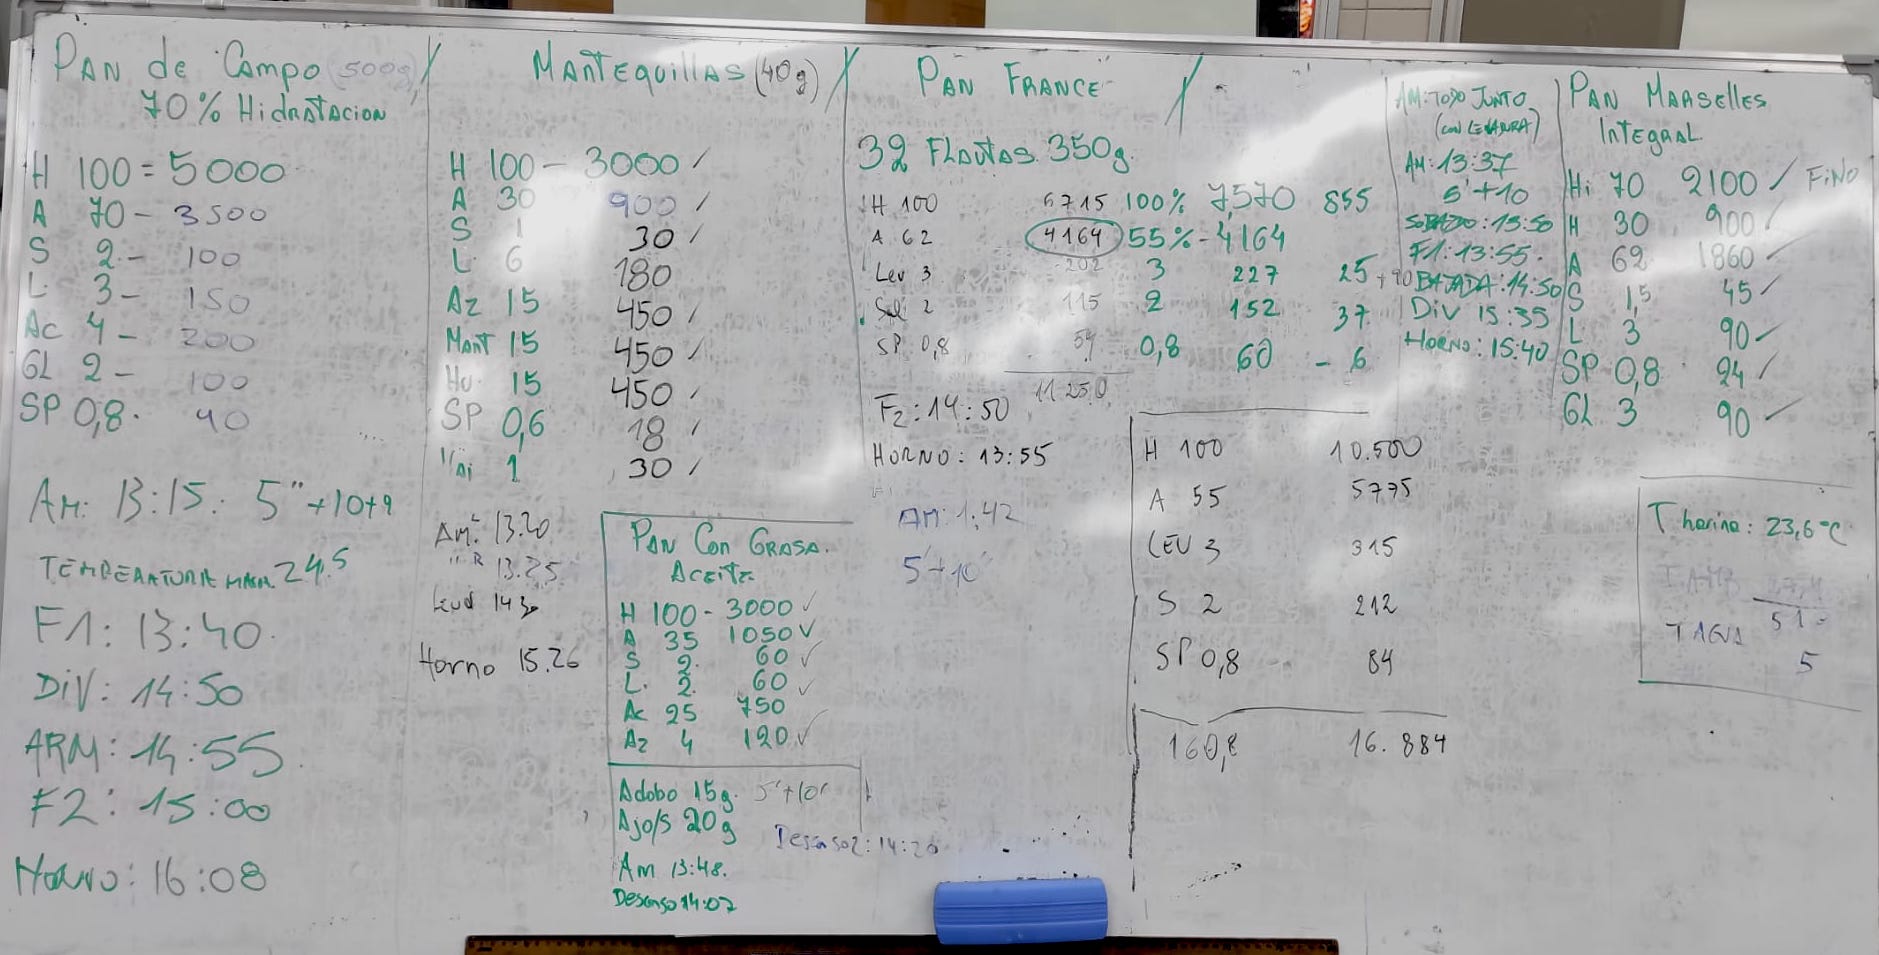 PAN de Campo (500g) /
70% HidRATACION
H 100 = 5000
A 70 - 3500
S 2 - 100
L 3 - 150
Ac 4 - 200
GL 2 - 100
SP 0,8 - 40
AM: 13:15: 5" +10+9
TEMPERATURA MASA 24.5
F1: 13:40
DIV: 14:50
ARM: 14:55
F2: 15:00
HORNO: 16:08
MANTEQUILLAS (40g) /
H 100 - 3000 /
A 30 900 /
S 1 30 /
L 6 180
AZ 15 450 /
MANT 15 450 /
Hu 15 450 /
SP 0,6 18 /
1 30 /
Am: 13.20
" R 13.25
Leud 14 30
Horno 15.26
PAN CON GRASA.
ACEITE
H 100 - 3000 ✓
A 35 1050 ✓
S 2 60 ✓
L 2 60 ✓
Ac 25 750
AZ 4 120 ✓
Adobo 15g. 5'+10'
Ajo/s 20g
AM 13:48.
Descanso 14:07
Descanso2: 14:20
PAN FRANCE /
32 FLAUTAS 350g.
H 100 6715 100% 7,570 855
A 62 4164 55% - 4164
Lev 3 202 3 227 25 +90
Sal 2 115 2 152 37
SP 0,8 54 0,8 60 - 6
11250
F2: 14:50
HORNO: 13:55
AM: 1:42
5'+10'
H 100 10.500
A 55 5775
LEV 3 315
S 2 212
SP 0,8 84
160,8 16.884
AM: TODO JUNTO
(CON LEVADURA)
AM: 13:37
5'+10
SOBADO: 13:50
F1: 13:55.
BAJADA: 14:50
DIV 15:35
HORNO: 15:40
PAN MARSELLES
INTEGRAL
Hi 70 2100 / FINO
H 30 900 /
A 62 1860 ✓
S 1,5 45 /
L 3 90 ✓
SP 0,8 24 /
GL 3 90 ✓
T harina: 23,6°C
T AMB 27,4
51
T AGUA 5